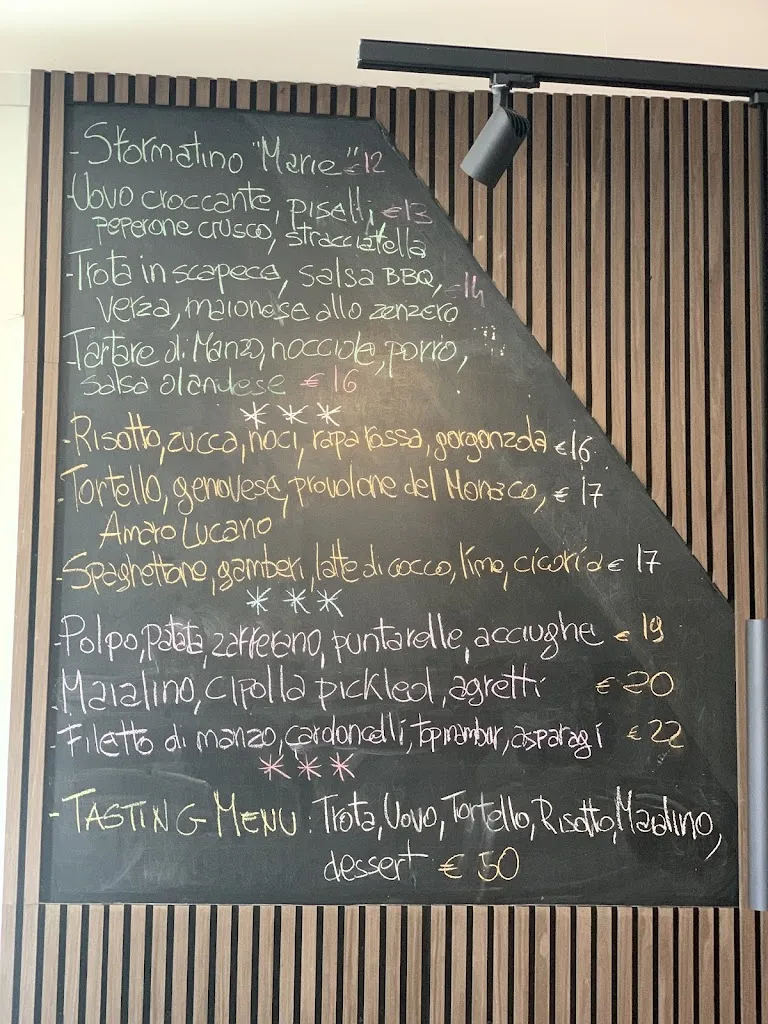 - Sformatino "Marie" €12
- Uovo croccante, piselli, €13
peperone crusco, stracciatella
- Trota in scapece, salsa BBQ, €14
verza, maionese allo zenzero
- Tartare di Manzo, nocciole, porro,
salsa olandese € 16
* * *
- Risotto, zucca, noci, rapa rossa, gorgonzola €16
- Tortello, genovese, provolone del Monaco, € 17
Amaro Lucano
- Spaghettone, gamberi, latte di cocco, lime, cicoria € 17
* * *
- Polpo, patata, zafferano, puntarelle, acciughe € 19
- Maialino, cipolla pickled, agretti € 20
- Filetto di manzo, cardoncelli, topinambur, asparagi € 22
* * *
- TASTING MENU: Trota, Uovo, Tortello, Risotto, Maialino,
dessert € 50